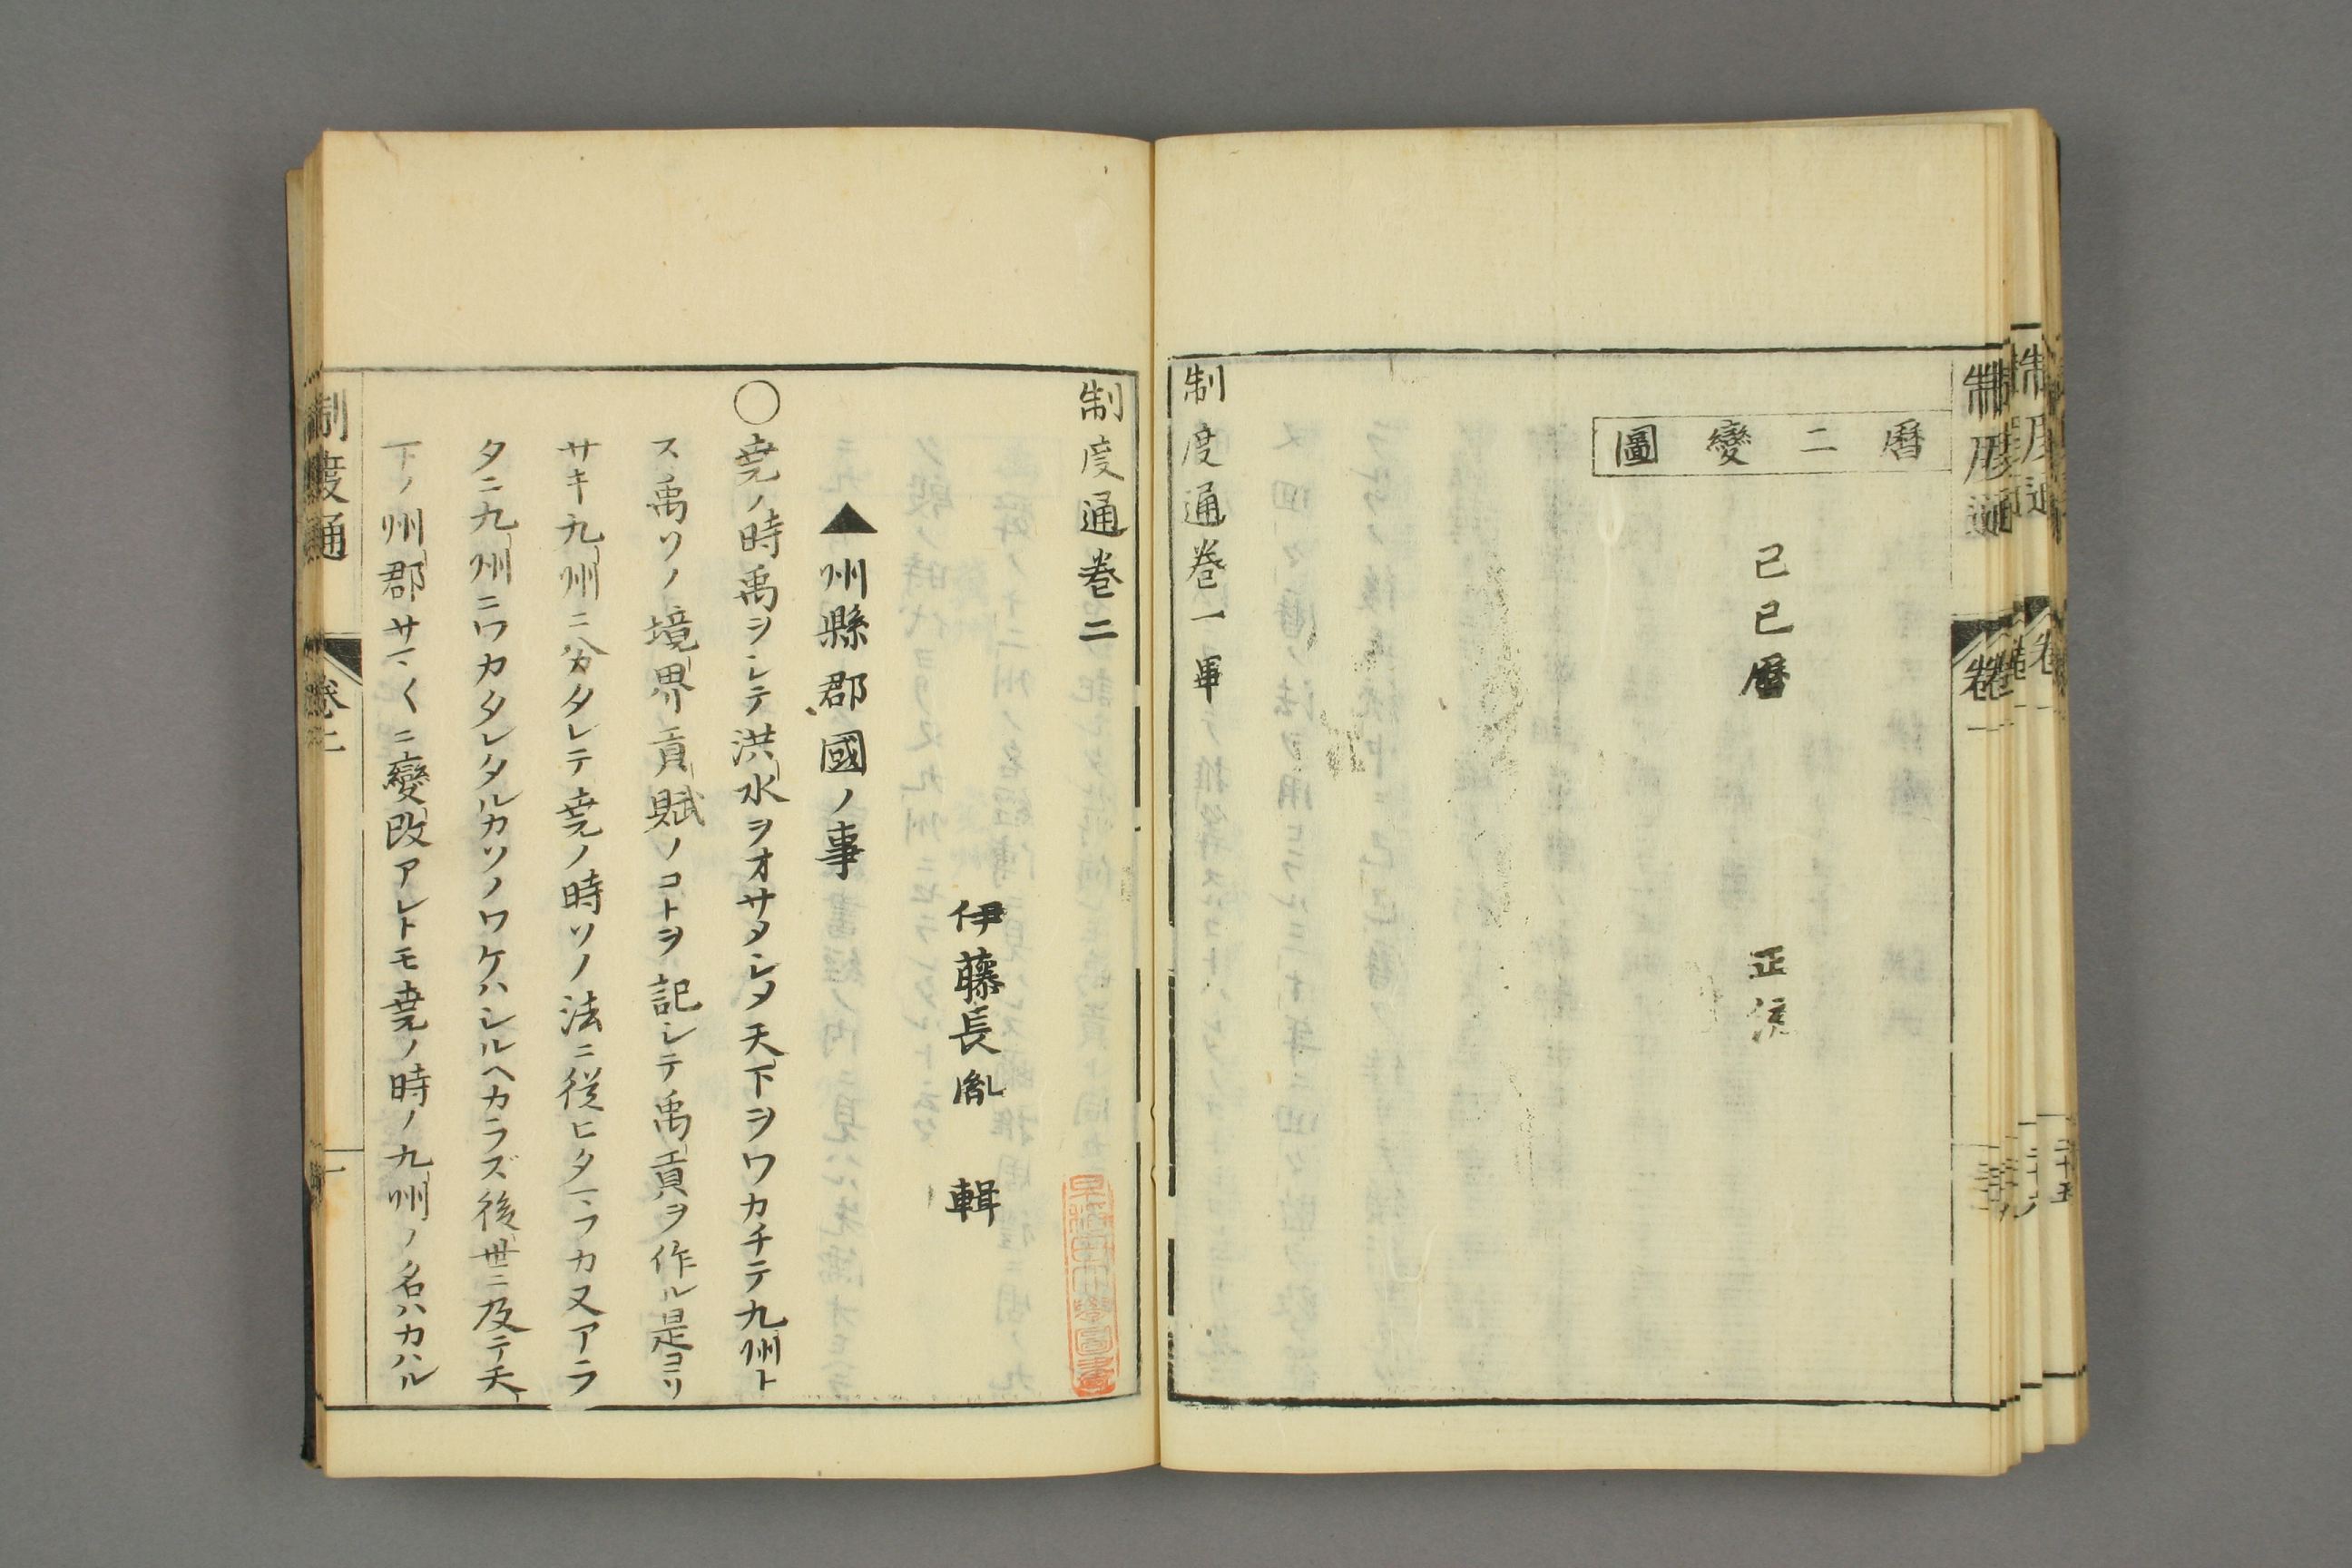 曆二變圖
己巳曆
正
制度通巻一畢
制度通巻二
伊藤長胤 輯
▲州縣郡國ノ事
○堯ノ時禹ヲシテ洪水ヲオサタレタ天下ヲワカチテ九州ト
ス禹ソノ境界貢賦ノコトヲ記シテ禹貢ヲ作ル是ヨリ
サキ九州ニ分カタレテ堯ノ時ソノ法ニ從ヒタマフカ又アラ
タニ九州ニワカタレタルカソノワケハシルヘカラズ後世ニ及テ天
下ノ州郡サマ〱ニ變改アレトモ堯ノ時ノ九州ノ名ハカハル
制度通
卷二
一
制度通
卷一
早稲田大學圖書